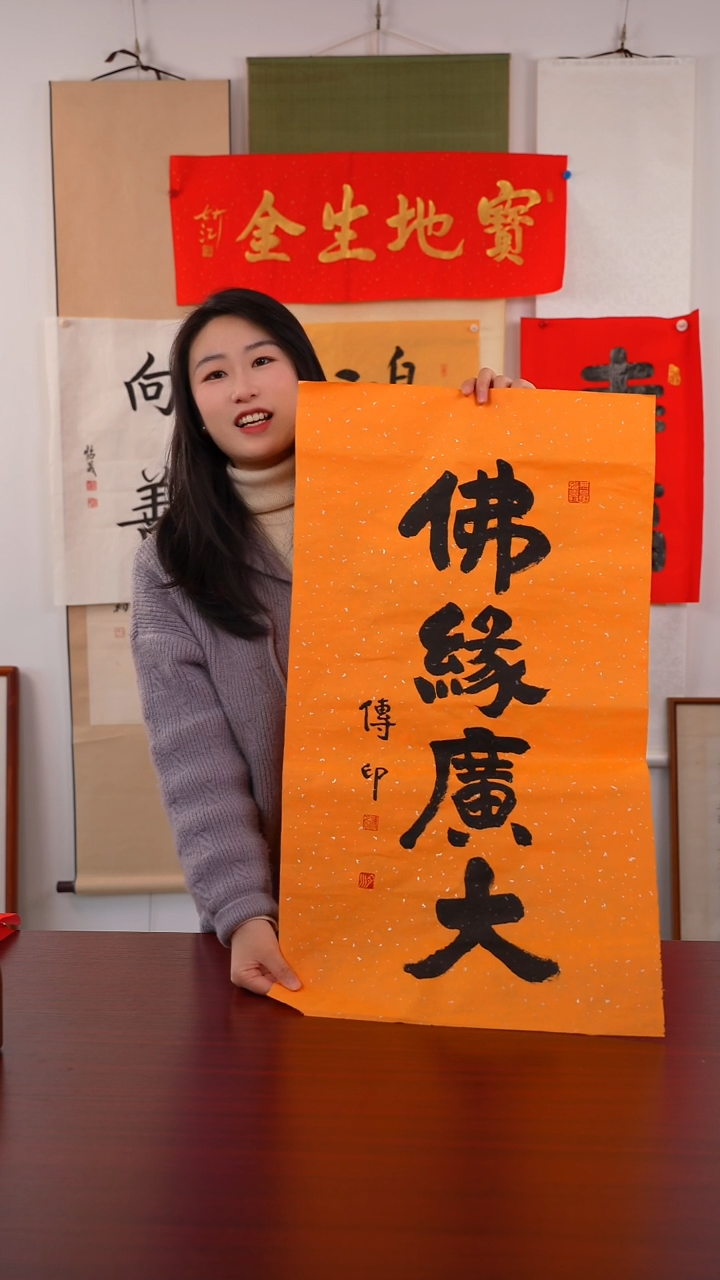 寶地生金
向善
佛緣廣大
傳印